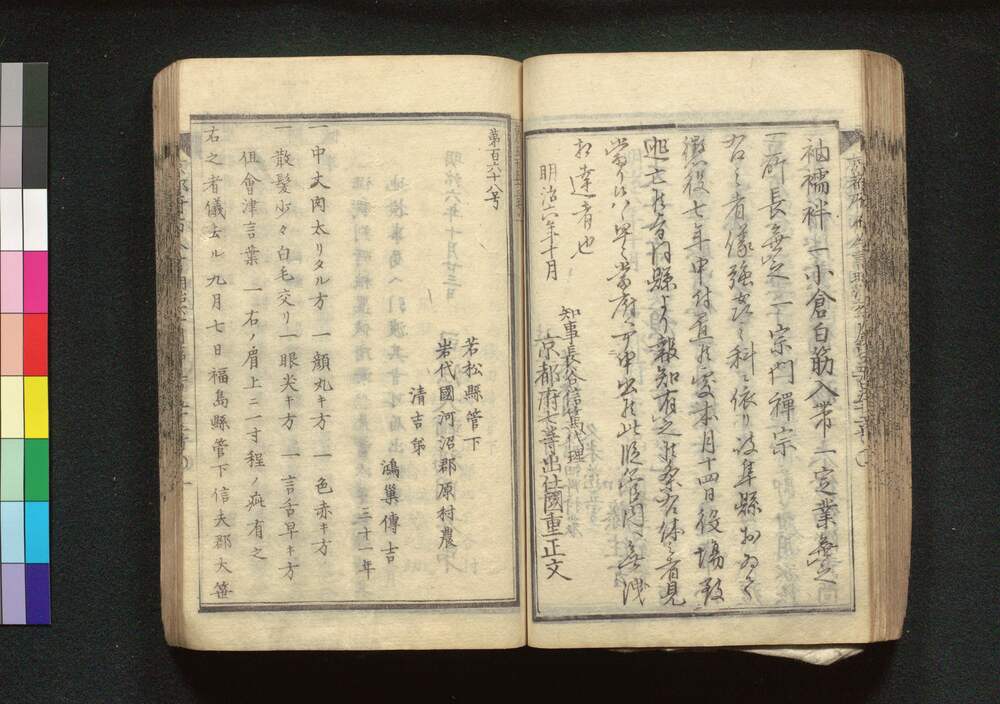 袖襦袢一小倉白筋入帯一定業無之
一所長無之一宗門禪宗
右之者儀強盗之科ニ依リ岐阜縣おゐて
懲役七年申付置候處本月十四日役場致
逃亡候旨同縣より報知有之候条右体之者見
當候ハヽ早々當府ヘ可申出候此段管内ヘ無洩
相達者也
明治六年十月
知事長谷信篤代理
京都府七等出仕國重正文
第百六十八号
若松縣管下
岩代國河沼郡原村農
清吉弟
鴻巢傳吉
三十一年
一中丈肉太リタル方 一顔丸キ方 一色赤キ方
一散髪少々白毛交リ一眼尖キ方 一言舌早キ方
但會津言葉 一右ノ肩上ニ一寸程ノ疵有之
右之者儀去ル九月七日福島縣管下信夫郡大笹